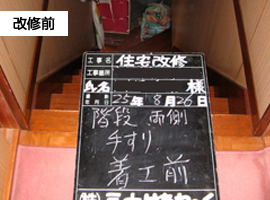 改修前
工事名 住宅改修
工事箇所
氏名 様
25年8月26日
階段 両側
手すり
着工前